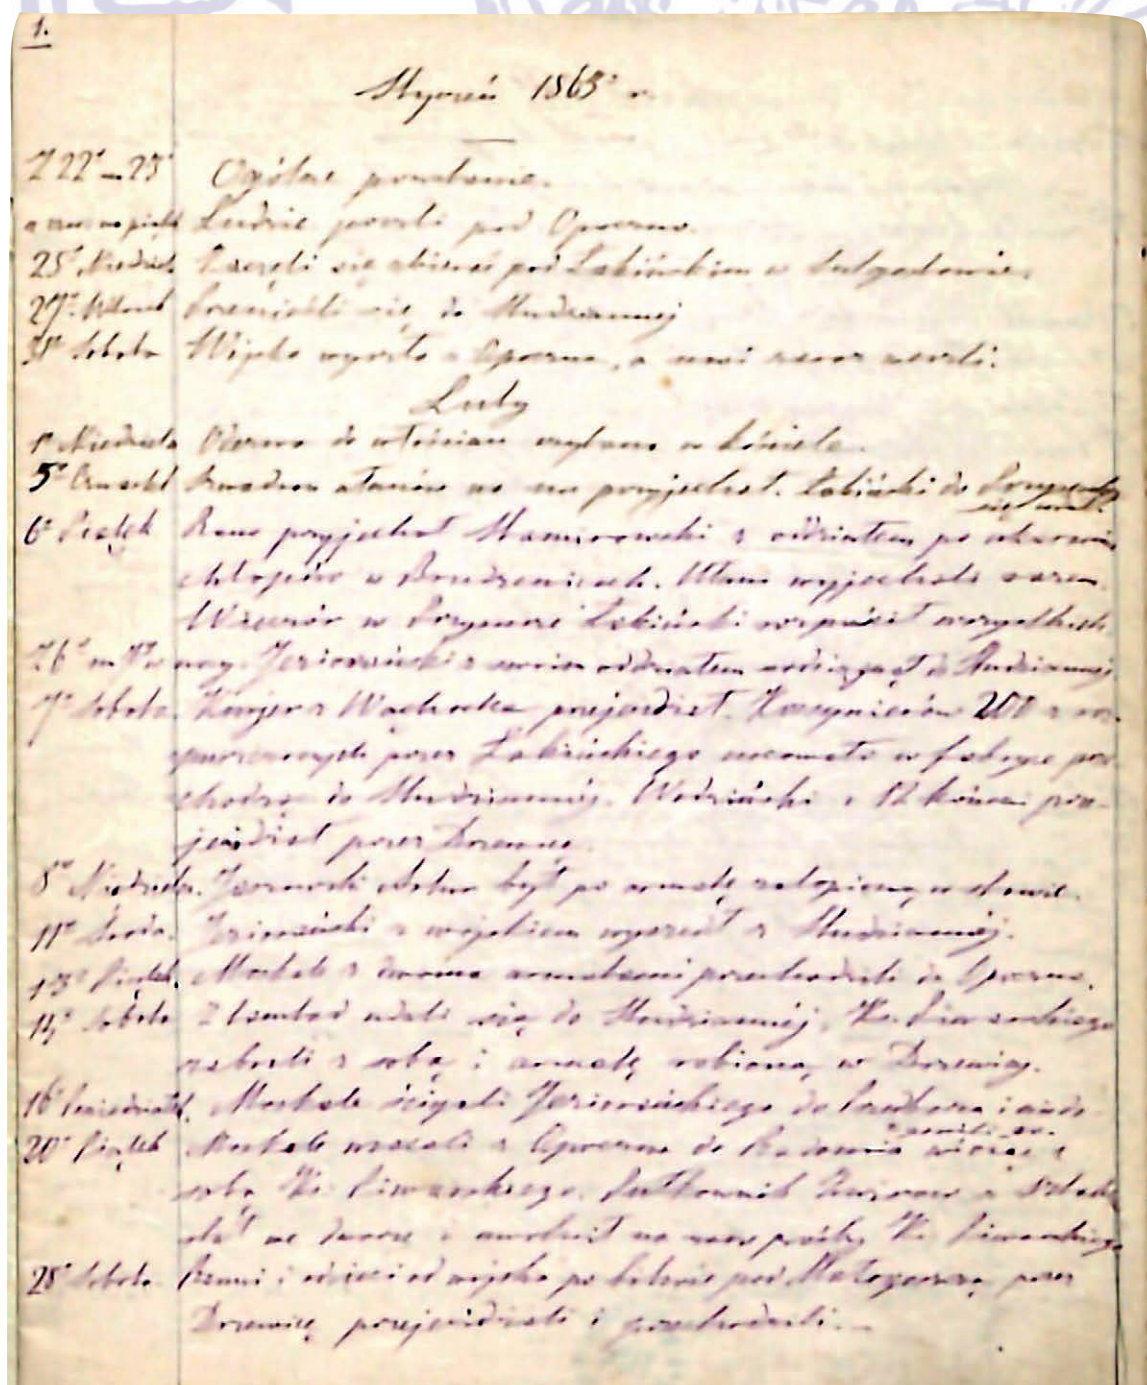 1.
Styczeń 1863° r.
Z 22° – 23° Ogólne powstanie.
Ludzie poszli pod Opoczno.
25° Niedziela Zaczęli się zbierać pod Łakińskim w
27° Wtorek Przenieśli się do Studziannej
31° Sobota Wojsko wyszło z Opoczna, a nasi zaraz weszli.
Luty
1° Niedziela Odezwa do włościan czytana w kościele.
5° Czwartek Szwadron ułanów na noc przyjechał. Łakiński do
6° Piątek Rano przyjechał z oddziałem po ukaraniu
chłopów w Brudzewicach. Ułani wyjechali zaraz.
Wieczór w Łakiński rozpuścił wszystkich
w nocy. Jeziorański z swoim oddziałem do Studziannej
7° Sobota. Kurjer z Wąchocka przejeżdżał. Kosynierów 200 z roz-
puszczonych przez Łakińskiego nocowało w fabryce prze-
chodząc do Studziannéj. z 12 końmi prze-
jeżdżał przez Drzewicę.
8° Niedziela. był po armatę zatopioną w stawie.
11° Środa. Jeziorański z wojskiem wyszedł z Studziannéj.
13° Piątek. Moskale z dwoma armatami przechodzili do Opoczna.
14° Sobota Z tamtąd udali się do Studziannéj, Ks. Piwarskiego
zabrali z sobą i armatę robioną w Drzewicy.
16° Poniedziałek. Moskale ścigali Jeziorańskiego do Przedborza i
20° Piątek Moskale wracali z Opoczna do Radomia wioząc z
sobą Ks. Piwarskiego. Pułkownik
stał we dworze i uwolnił na prośby Ks. Piwarskiego
28° Sobota Ranni i od wojska po bitwie pod Małogoszczą przez
Drzewicę przejeżdżali i przechodzili. —